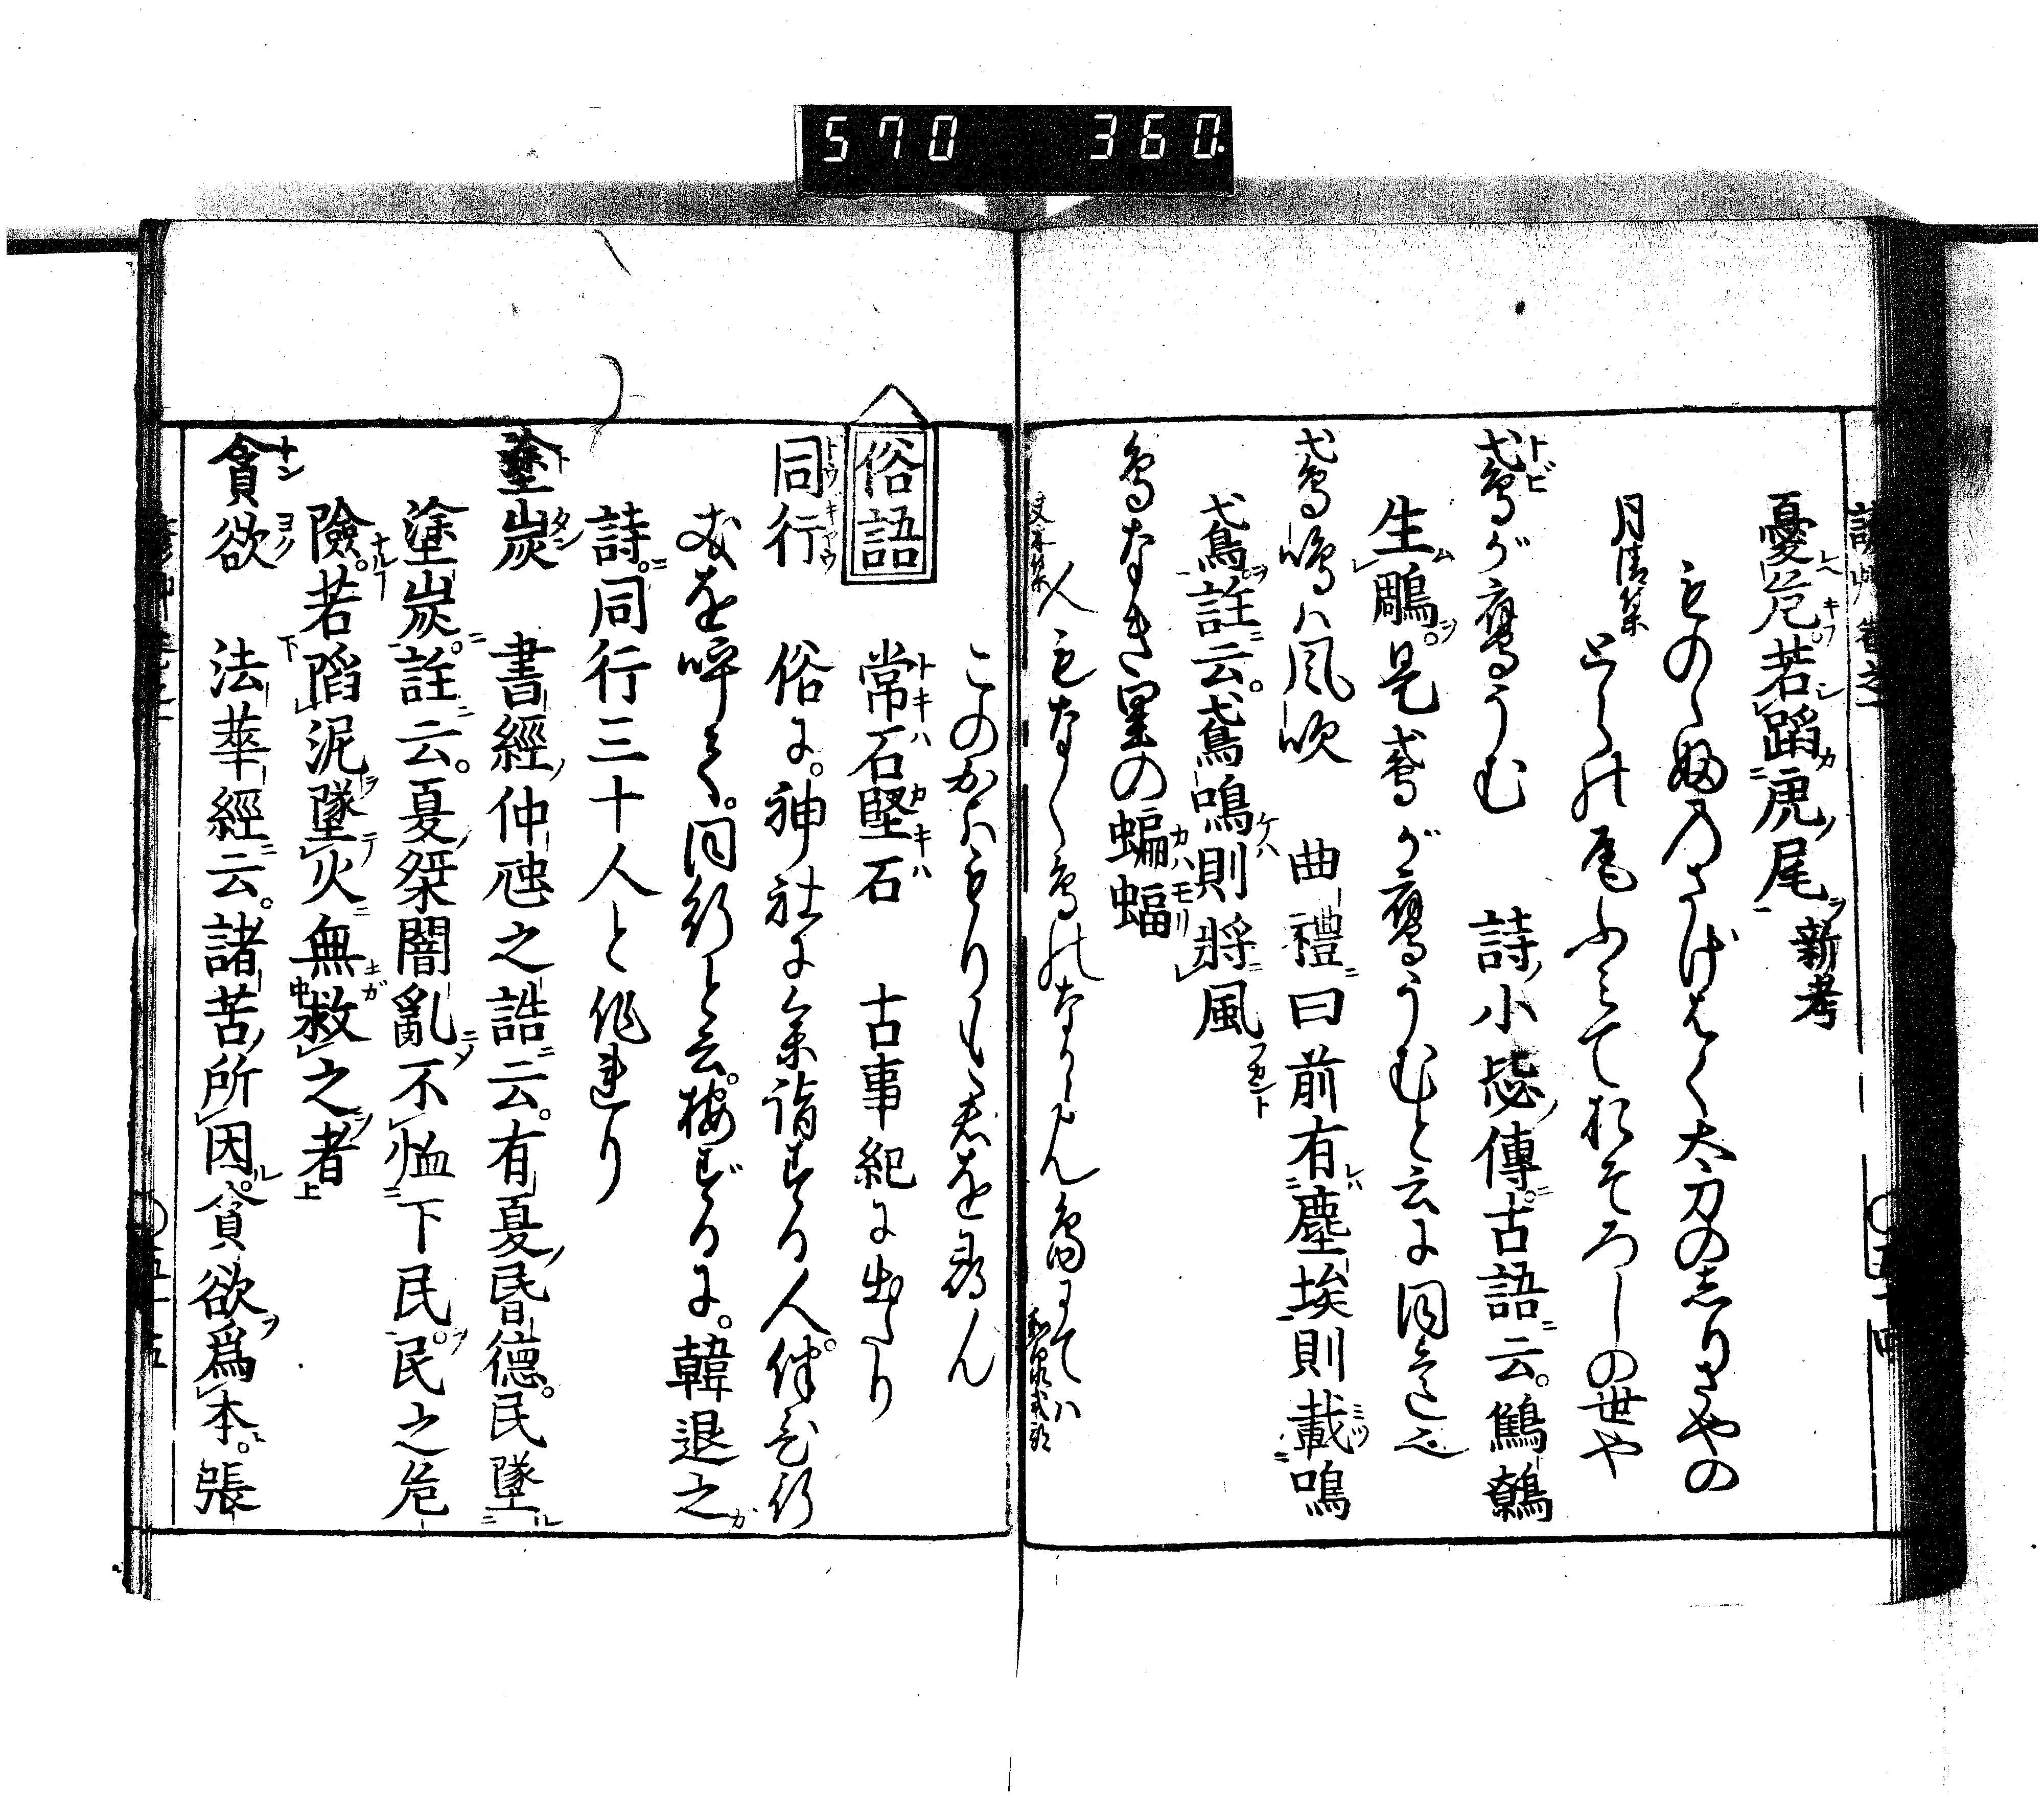 570 360.
憂危若蹈虎尾 新考
ものゝふのさげはく太刀のしりさやの
月清集 とらの尾ふみておそろしの世や
鳶が鷹うむ 詩小毖傳古語云鷦鷯
生鵰是鳶が鷹うむと云に同意也
鳶鳴ハ風吹 曲禮曰前有塵埃則載鳴
鳶註云鳶鳴則將風
鳥なき里の蝙蝠
夫木集 人もなく鳥もなからん嶋にてハ 和泉式部
このかはもりも君を尋ん
俗語 常石堅石 古事紀に出たり
同行 俗に神社に參詣する人伴ひ行
友を呼て同行と云按ずるに韓退之
詩同行三十人と作れり
塗炭 書經仲虺之誥云有夏昏德民墜
塗炭註云夏桀闇亂不恤下民民之危
險若陷泥墜火無救之者
貪欲 法華經云諸苦所因貪欲爲本張